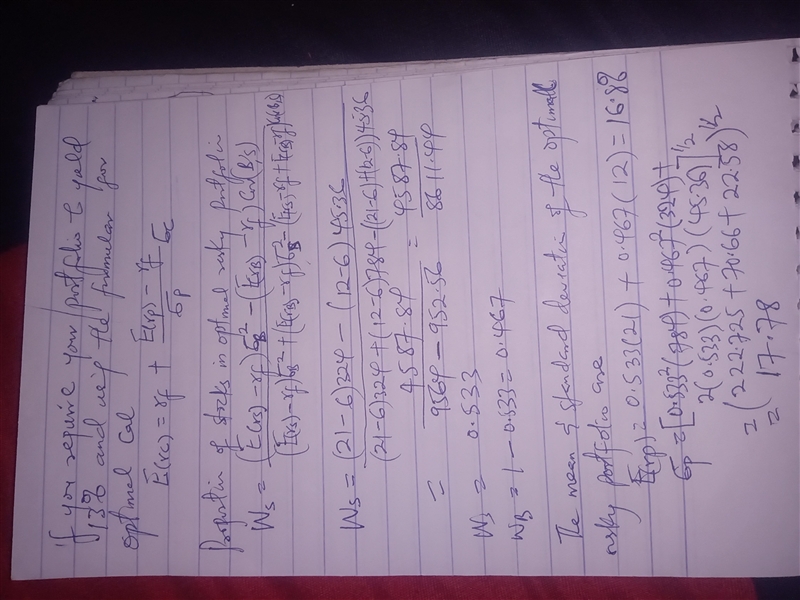 If you require your portfolio to yield
13% and using the formular for
optimal Cal
E(rc) = rf + E(rp) - rf / σp σc
Proportion of stocks in optimal risky portfolio
Ws = (E(rs) - rf) σB² - (E(rB) - rf) Cov(B,S)
(E(rs) - rf) σB² + (E(rB) - rf) σs² - (E(rs) - rf + E(rB) - rf) Cov(B,S)
Ws = (21-6)324 - (12-6)45.36
(21-6)324 + (12-6)784 - (21-6)+(12-6)45.36
= 4587.84 = 4587.84
9564 - 952.56 8611.44
Ws = 0.533
WB = 1 - 0.533 = 0.467
The mean & standard deviation of the optimal
risky portfolio are
E(rp) = 0.533(21) + 0.467(12) = 16.8%
σp = [0.533²(784) + 0.467²(324) +
2(0.533)(0.467)(45.36)]½
= (222.725 + 70.66 + 22.58)½
= 17.78